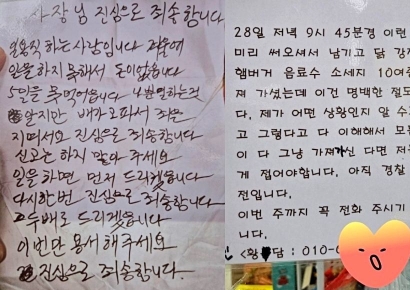 사장님 진심으로 죄송합니다
일용직 하는 사람입니다 때문에
일을 하지 못해서 돈이 없습니다
5일을 못먹었습니다 나쁜일하는것
알지만 배가 고파서 죄송
지떠서요 진심으로 죄송합니다
신고는 하지 말아 주세요
일을 하면 먼저 드리겠습니다
다시한번 진심으로 죄송합니다
두배로 드리겠습니다
이번만 용서해주세요
진심으로 죄송합니다.
28일 저녁 9시 45분경 이런
미리 써오셔서 남기고 닭 강
햄버거 음료수 소세지 10여
져 가셨는데 이건 명백한 절도
다. 제가 어떤 상황인지 알 수
고 그렇다고 다 이해해서 모
이 다 그냥 가져가신 다면 저
게 접어야합니다. 아직 경찰
전입니다.
이번 주까지 꼭 전화 주시기
니다.
<황 담 : 010-